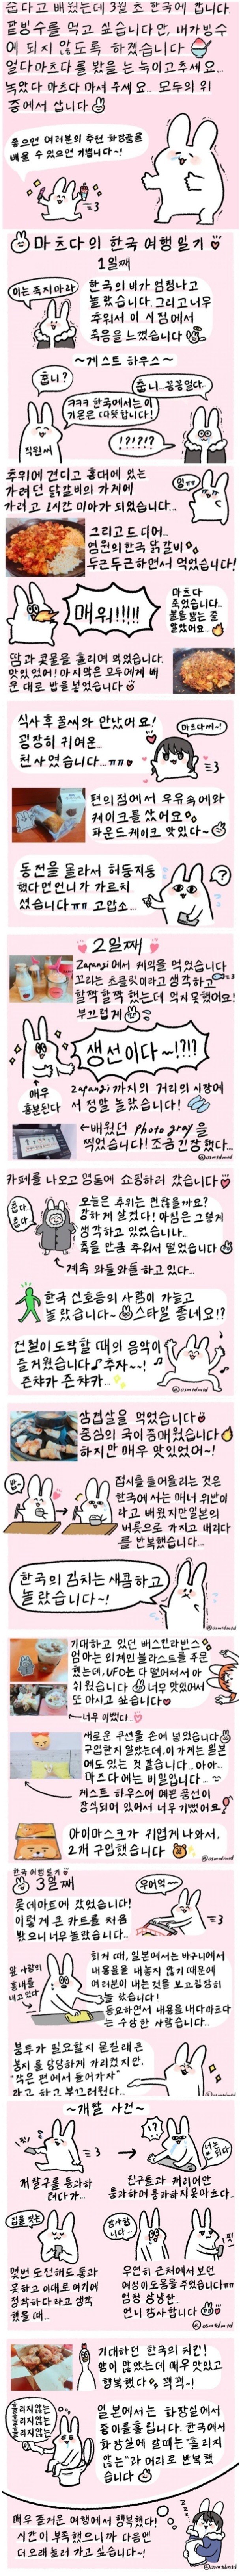 춥다고 배웠는데 3월 초 한국에 갑니다.
팥빙수를 먹고 싶습니다만, 내가 빙수
에 되지 않도록 하겠습니다
얼다마츠다를 봤을 는 녹이고 주세요..
녹았다 마츠다 마셔 주세요.. 모두의 위
중에서 삽니다
좋으면 여러분의 추천 화장품을
배울 수 있으면 기쁩니다~!
마츠다의 한국 여행일기
1일째
이는 죽지마라
한국의 비가 엄청나고
놀랐습니다. 그리고 너무
추워서 이 시점에서
죽음을 느꼈습니다
~게스트 하우스~
춥니?
춥니...꽁꽁얼다..
ㅋㅋㅋ 한국에서는 이
기온은 따뜻합니다!
직원씨
!?!?!?
추위에 견디고 홍대에 있는
가려던 닭갈비의 가게에
가려고 1시간 미아가 되었습니다...
그리고 드디어..
염원의 한국 닭갈비
두근두근하면서 먹었습니다!
매워!!!!!
마츠다
죽었습니다..
불을 뿜는 줄
알았어요..
땀과 콧물을 흘리며 먹었습니다.
맛있었어! 마지막은 모두에게 배
운 대로 밥을 넣었습니다
식사 후 꿀씨와 만났어요!
굉장히 귀여운..
천사였습니다...ㅠㅠ
마츠다씨~!
편의점에서 우유속에와
케이크를 샀어요
파운드케이크 맛있다~
동전을 몰라서 허둥지둥
했다면 언니가 가르치
셨습니다ㅠㅠ 고맙소...
?
2일째
Zapangi에서 케익을 먹었습니다
꼬리는 초콜릿이라고 생각하고
할짝할짝 했는데 먹지 못했어요!
부끄럽게
생선이다~!???
매우
흥분된다
zapangi까지의 거리의 시장에
서 정말 놀랐습니다!
←배웠던 Photo gray을
찍었습니다! 조금 긴장했다...
@osmcdmcd
카페를 나오고 명동에 쇼핑하러 갔습니다
춥다
춥다
오늘은 추위는 괜찮을까요?
강하게 살겠다! 아침은 그렇게
생각하고 있었습니다..
죽을 만큼 추워서 떨었습니다
계속 와들와들 하고 있다...
한국 신호등의 사람이 가늘고
놀랐습니다~ 스타일 좋네요!?
전철이 도착할 때의 음악이
즐거웠습니다♪ 추자~~!
즌챠카 즌챠카...
@osmcdmcd
삼겹살을 먹었습니다
중심의 국이 중매웠습니다
하지만 매우 맛있었어~!
접시를 들어올리는 것은
한국에서는 매너 위반이
라고 배웠지만 일본의
버릇으로 가지고 내리다
를 반복했습니다...
한국의 김치는 새콤하고
놀랐습니다~!
@osmcdmcd
기대하고 있던 배스킨라빈스
엄마는 외계인 블라스트를 주문
했는데, UFO는 다 떨어져서 아
쉬웠습니다 너무 맛있었어
또 마시고 싶습니다
너무 이뻤다..
새로운 쿠션을 손에 넣었습니다
구입한지 알았는데, 이 가게는 일본
에도 있는 것 같습니다.. 아아..
마츠다에는 비밀입니다...
게스트 하우스에 예쁜 풍선이
장식되어 있어서 너무 귀여웠어요!
아이마스크가 귀엽게 나와서,
2개 구입했습니다
@osmcdmcd
한국 여행 일기
3일째
우어억~~
롯데마트에 갔었습니다!
이렇게 큰 카트를 처음
봤으니 너무 놀랐습니다..
앞 사람의
흉내를
내고 있다
회계 때, 일본에서는 바구니에서
내용물을 내놓지 않기 때문에
여러분이 내는 것을 보고 굉장히
놀랐습니다!
동요하면서 내용을 내다 마츠다
는 수상한 사람습니다..
봉투가 필요할지 물릴래 큰
봉지를 당당하게 가리켰지만,
"작은 편에서 들어가자"
라고 하고 부끄러웠다..
@osmcdmcd
~개찰 사건~
개찰구를 통과하
려다가..
!?
너는
안 된다!
친구들과 캐리어만
통과하며 통과하지 못하츠다..
몇번 도전해도 통과
못하고 이대로 여기에
정착하다라고 생각
했을 때..
감사합
니다..
우연히 근처에서 보던
여성이 도움을 주었습니다ㅠㅠ
엄청 상냥한..
언니 감사합니다
@osmcdmcd
기대하던 한국의 치킨!
양이 많았는데 매우 맛있고
행복했다 꺽꺽~!
흘리지 않는
흘리지 않는
흘리지 않는
일본에서는 화장실에서
종이를 흘립니다. 한국에서
화장실에 갈때는 "흘리지
않는" 다 머리로 반복했
습니다
매우 즐거운 여행에서 행복했다!
시간이 부족했으니까 다음엔
더 오래 놀러 가고 싶습니다~!
@osmcdmcd